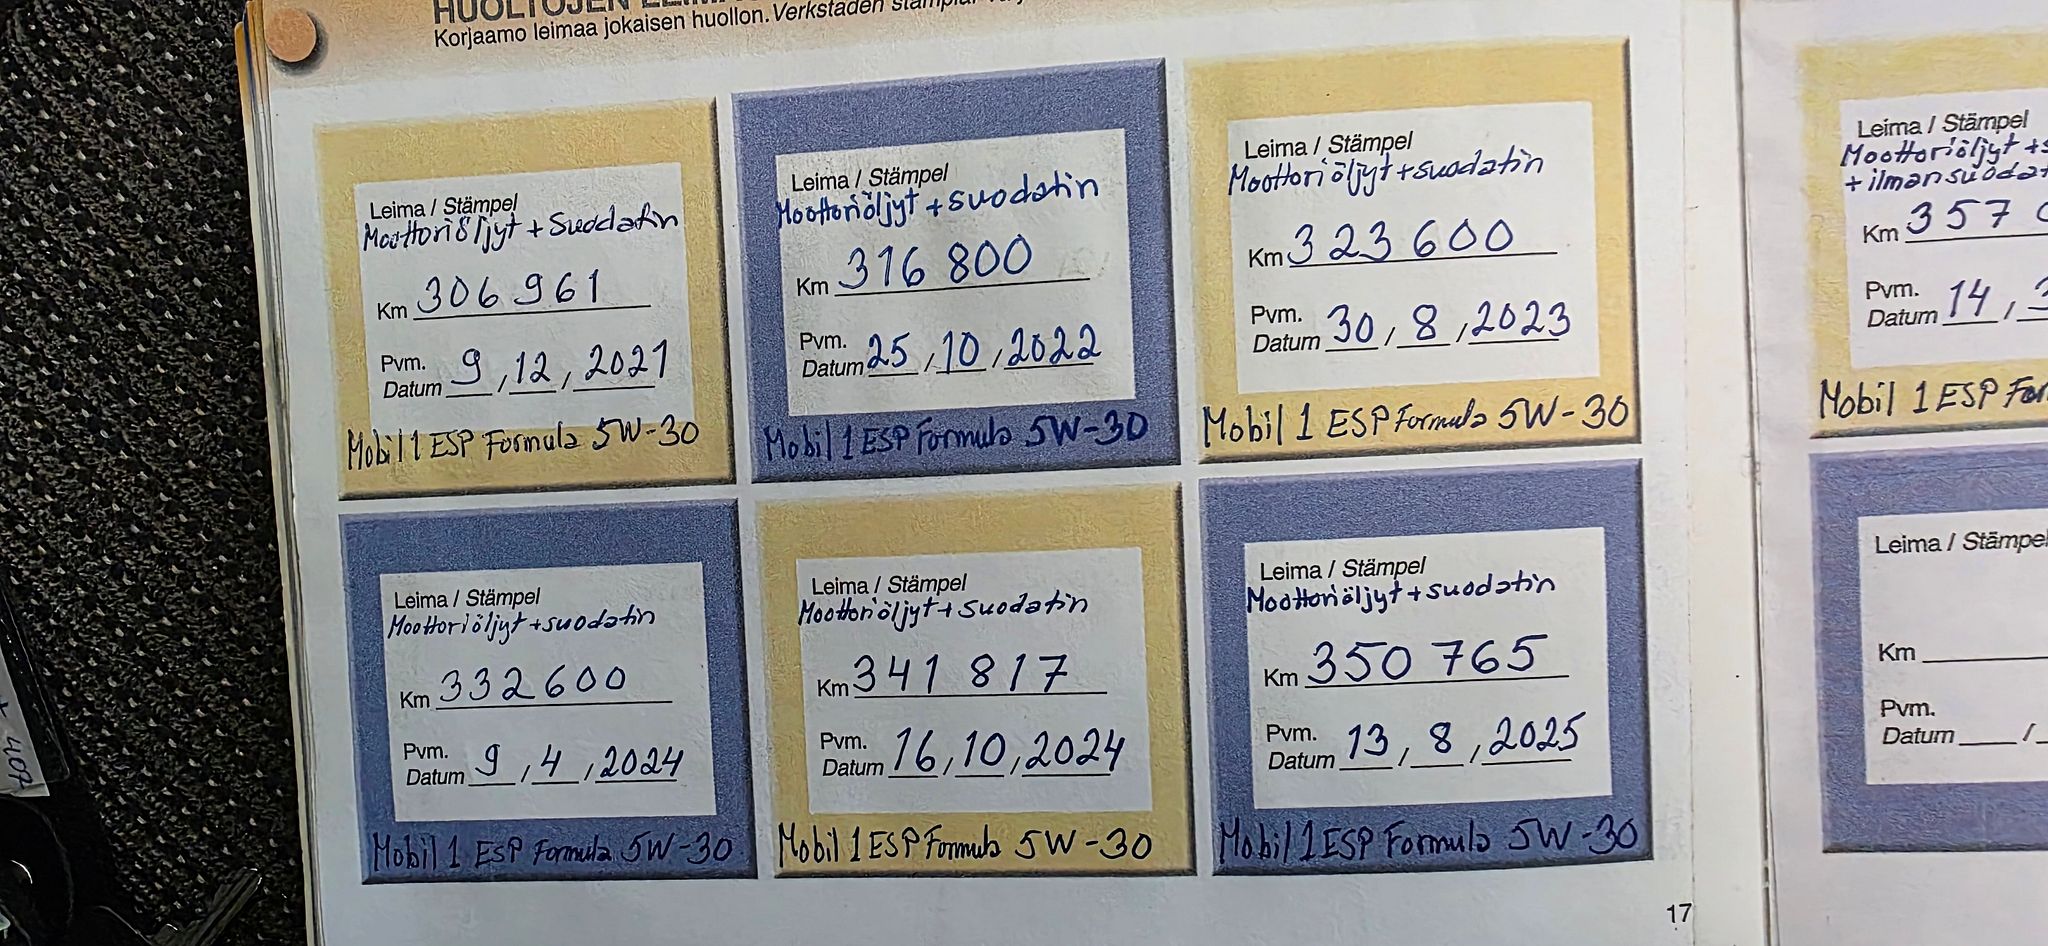 Korjaamo leimaa jokaisen huollon. Verkstaden
Leima / Stämpel
Moottoriöljyt + Suodatin
Km 306 961
Pvm.
Datum 9, 12, 2021
Mobil 1 ESP Formula 5W-30
Leima / Stämpel
Moottoriöljyt + suodatin
Km 316 800
Pvm.
Datum 25, 10, 2022
Mobil 1 ESP Formula 5W-30
Leima / Stämpel
Moottoriöljyt + suodatin
Km 323 600
Pvm.
Datum 30 / 8, 2023
Mobil 1 ESP Formula 5W-30
Leima / Stämpel
Moottoriöljyt + suodatin
Km 332600
Pvm.
Datum 9, 4, 2024
Mobil 1 ESP Formula 5W-30
Leima / Stämpel
Moottoriöljyt + suodatin
Km 341 817
Pvm.
Datum 16, 10, 2024
Mobil 1 ESP Formula 5W-30
Leima / Stämpel
Moottoriöljyt + suodatin
Km 350 765
Pvm.
Datum 13 / 8, 2025
Mobil 1 ESP Formula 5W-30
17
Leima / Stämpel
Moottoriöljyt +
+
Km 357
Pvm.
Datum 14 /
Mobil 1 ESP
Leima / Stämpel
Km
Pvm.
Datum /
407